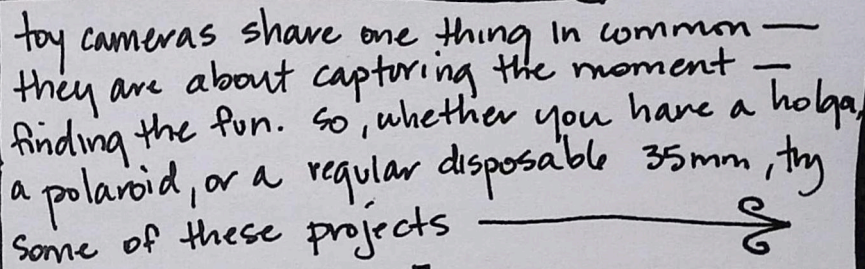 toy cameras share one thing in common —
they are about capturing the moment —
finding the fun. So, whether you have a holga,
a polaroid, or a regular disposable 35mm, try
some of these projects